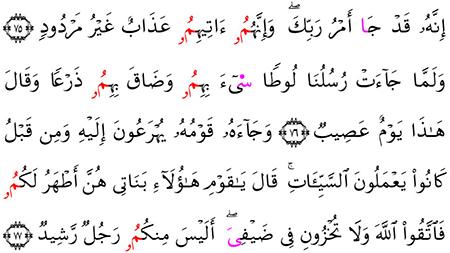 إِنَّهُۥ قَدْ جَا أَمْرُ رَبِّكَۖ وَإِنَّهُمُۥ ءَاتِيهِمُۥ عَذَابٌ غَيْرُ مَرْدُودٍ ٧٥
وَلَمَّا جَآءَتْ رُسُلُنَا لُوطٗا سِۓءَ بِهِمُۥ وَضَاقَ بِهِمُۥ ذَرْعٗا وَقَالَ
هَٰذَا يَوْمٌ عَصِيبٌ ٧٦ وَجَآءَهُۥ قَوْمُهُۥ يُهْرَعُونَ إِلَيْهِ وَمِن قَبْلُ
كَانُواْ يَعْمَلُونَ اَ۬لسَّيِّـَٔاتِۚ قَالَ يَٰقَوْمِ هَٰٓؤُلَآءِ بَنَاتِى هُنَّ أَطْهَرُ لَكُمُۥ
فَاتَّقُواْ اُ۬للَّهَ وَلَا تُخْزُونِ فِى ضَيْفِىَۖ أَلَيْسَ مِنكُمُۥ رَجُلٌ رَّشِيدٌ ٧٧